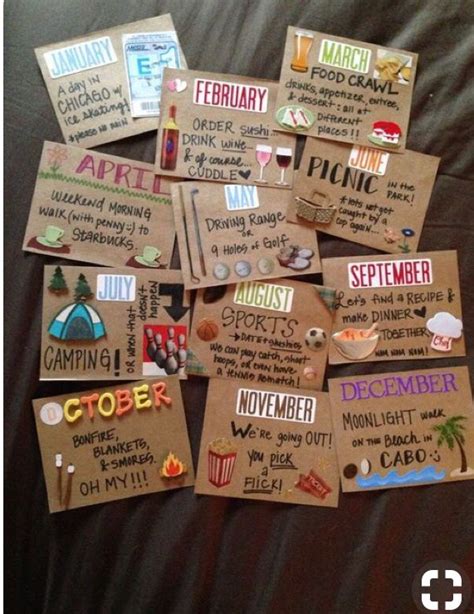 JANUARY
A day in
CHICAGO w/
ice skating!
*please no rain
FEBRUARY
ORDER sushi...
DRINK wine...
& of course...
CUDDLE
MARCH
FOOD CRAWL
drinks, appetizer, entree,
& dessert: all at
different
places!!
APRIL
WEEKEND MORNING
WALK (with penny:) to
STARBUCKS.
MAY
DRIVING RANGE
or
9 HOLES of GOLF
JUNE
PICNIC in the PARK!
*lets not get
caught by a
cop again...
JULY
CAMPING!
or when that doesn't happen
AUGUST
SPORTS
DATE
We can play catch, shoot
hoops, or even have
a tennis rematch!
SEPTEMBER
Let's find a RECIPE &
make DINNER
TOGETHER
NOM NOM NOM!
Chef
OCTOBER
BONFIRE,
BLANKETS,
& SMORES.
OH MY!!!
NOVEMBER
We're going OUT!
You pick
a
FLICK!
DECEMBER
MOONLIGHT walk
ON the BEACH in
CABO :)